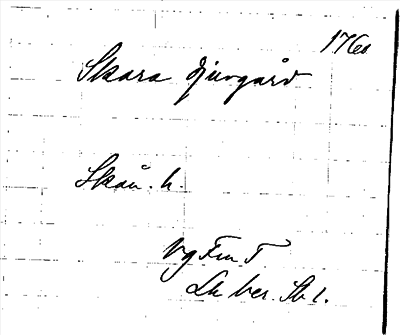 1760
Skara djurgård
Skån. h.
Vg Fm T
Lh ber. Sk 1.